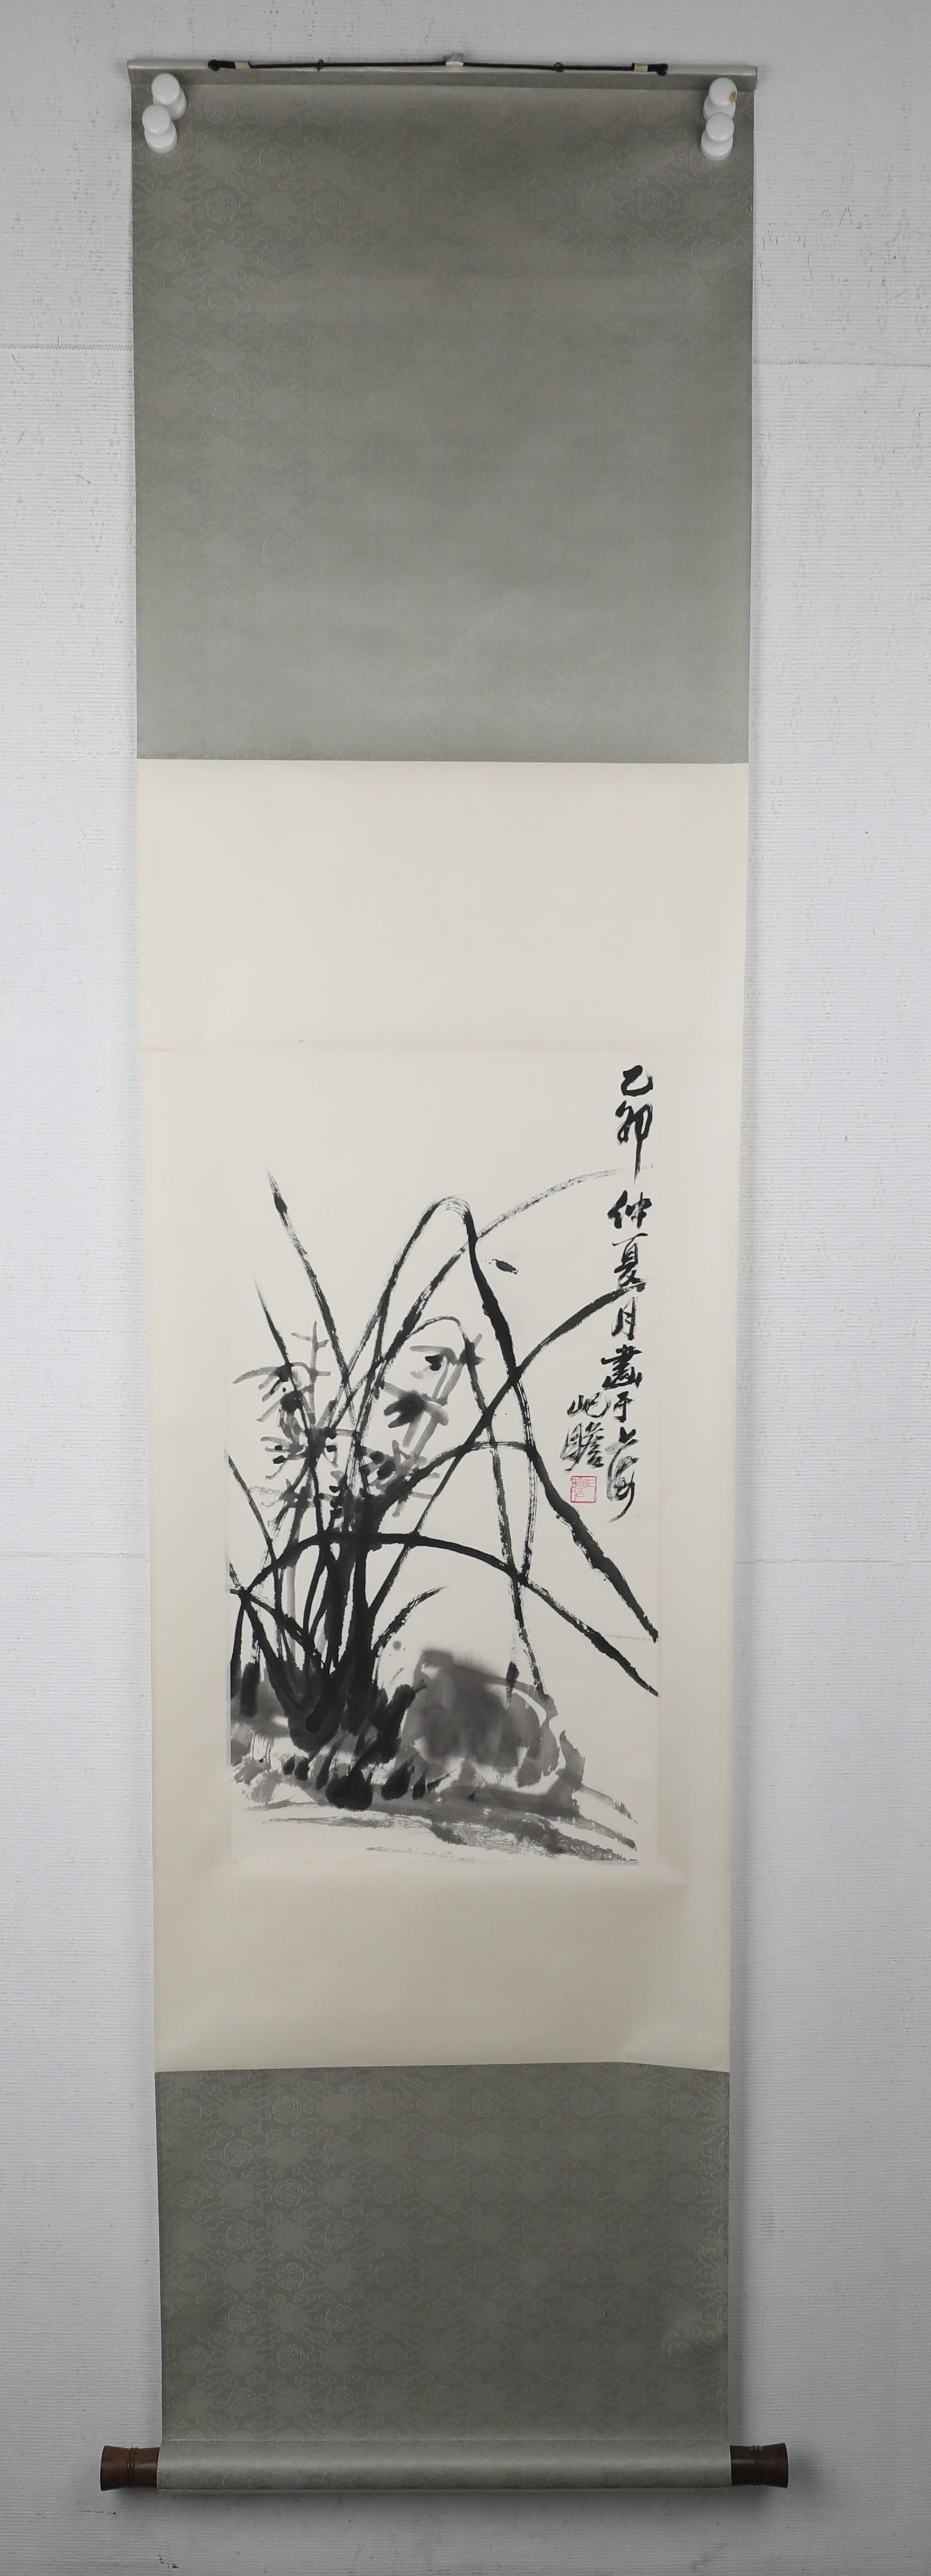 乙卯仲夏月畫于上海
屺瞻